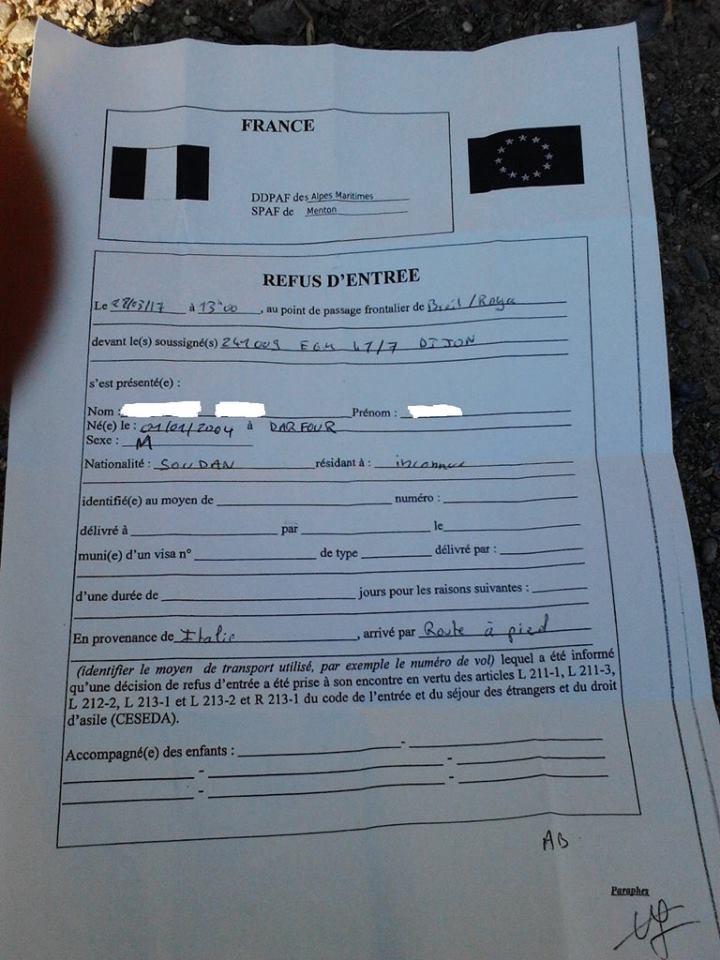 FRANCE
DDPAF des Alpes Maritimes
SPAF de Menton
REFUS D'ENTREE
Le 28/03/17 à 13h00, au point de passage frontalier de Breil/Roya
devant le(s) soussigné(s) 241009 EGM 47/7 DIJON
s'est présenté(e) :
Nom : Prénom :
Né(e) le : 01/01/2004 à DARFOUR
Sexe : M
Nationalité : SOUDAN résidant à : inconnue
identifié(e) au moyen de numéro :
délivré à par le
muni(e) d'un visa n° de type délivré par :
d'une durée de jours pour les raisons suivantes :
En provenance de Italie, arrivé par Route à pied
(identifier le moyen de transport utilisé, par exemple le numéro de vol) lequel a été informé
qu'une décision de refus d'entrée a été prise à son encontre en vertu des articles L 211-1, L 211-3,
L 212-2, L 213-1 et L 213-2 et R 213-1 du code de l'entrée et du séjour des étrangers et du droit
d'asile (CESEDA).
Accompagné(e) des enfants : -
- -
- -
AB
Paraphes